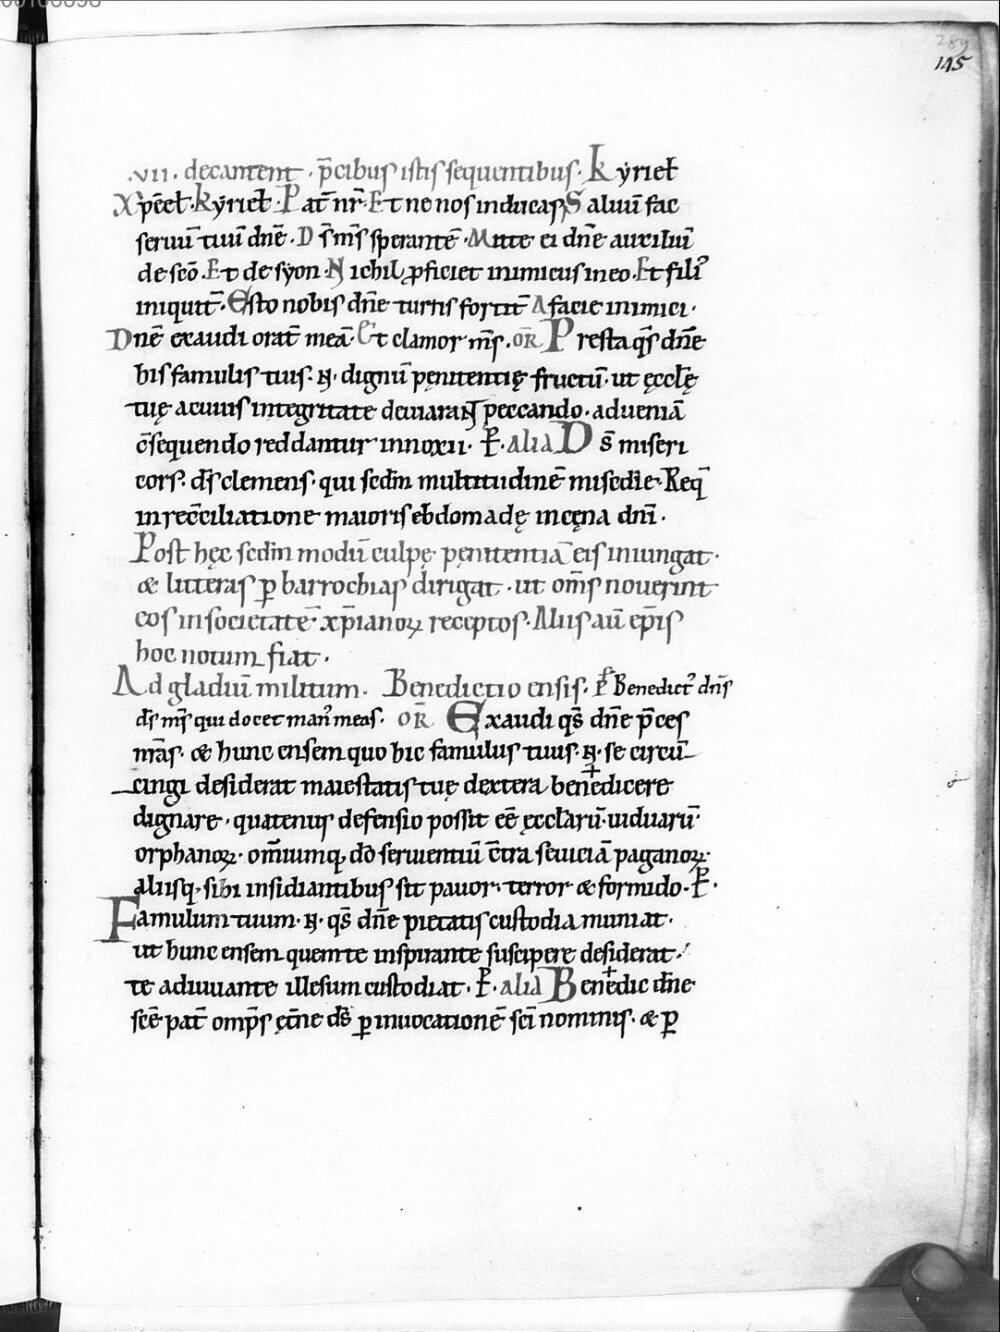 289
145
.vii. decantent. p̄cibus istis sequentibus. Kyriel̄
Xp̄el̄. Kyriel̄. Pat̄ nr̄. Et ne nos inducas. Saluū fac
seruū tuū dn̄e. Ds̄ ms̄ sperantē. Mitte ei dn̄e auxiliū
de scō. Et de syon. Nichil ꝓficiet inimicus in eo. Et filiꝰ
iniquit̄. Esto nobis dn̄e turris fortit̄ A facie inimici.
Dn̄e exaudi orat̄ meā. Et clamor ms̄. OR̄ Presta qs̄ dn̄e
his famulis tuis. N. dignū pęnitentię fructū. ut ęccl̄ę
tuę a cuius integritate deuiaraN̄ peccando. adueniā
c̄sequendo reddantur innoxii. P̄. alia Ds̄ miseri
cors. ds̄ clemens. qui scdm̄ multitudinē misedīe. Req̄
in rec̄ciliatione maioris ebdomadę in cęna dn̄i.
Post hęc scdm̄ modū culpę pęnitentiā eis iniungat.
& litteras ꝑ barrochias dirigat. ut om̄s nouerint
eos in societatē xp̄ianoꝝ receptos. Aliis aū ep̄is
hoc notum fiat.
Ad gladiū militum. Benedictio ensis. P̄s Benedictꝰ dn̄s
ds̄ ms̄ qui docet manꝰ meas. OR̄ Exaudi qs̄ dn̄e p̄ces
nr̄as. & hunc ensem quo hic famulus tuus. N. se circū
cingi desiderat maiestatis tuę dextera bene✝dicere
dignare. quatenus defensio possit eē ęccl̄arū. uiduarū.
orphanoꝝ. om̄iumq; dō seruientiū c̄tra seuiciā paganoꝝ.
aliisq; sibi insidiantibus sit pauor. terror & formido. P̄.
Famulum tuum. N. qs̄ dn̄e pietatis custodia muniat.
ut hunc ensem quem te inspirante suscipere desiderat.
te adiuuante illesum custodiat. P̄. alia Bene✝dic dn̄e
scē pat̄ omp̄s ęt̄ne ds̄ ꝑ inuocationē sc̄i nominis. & ꝑ